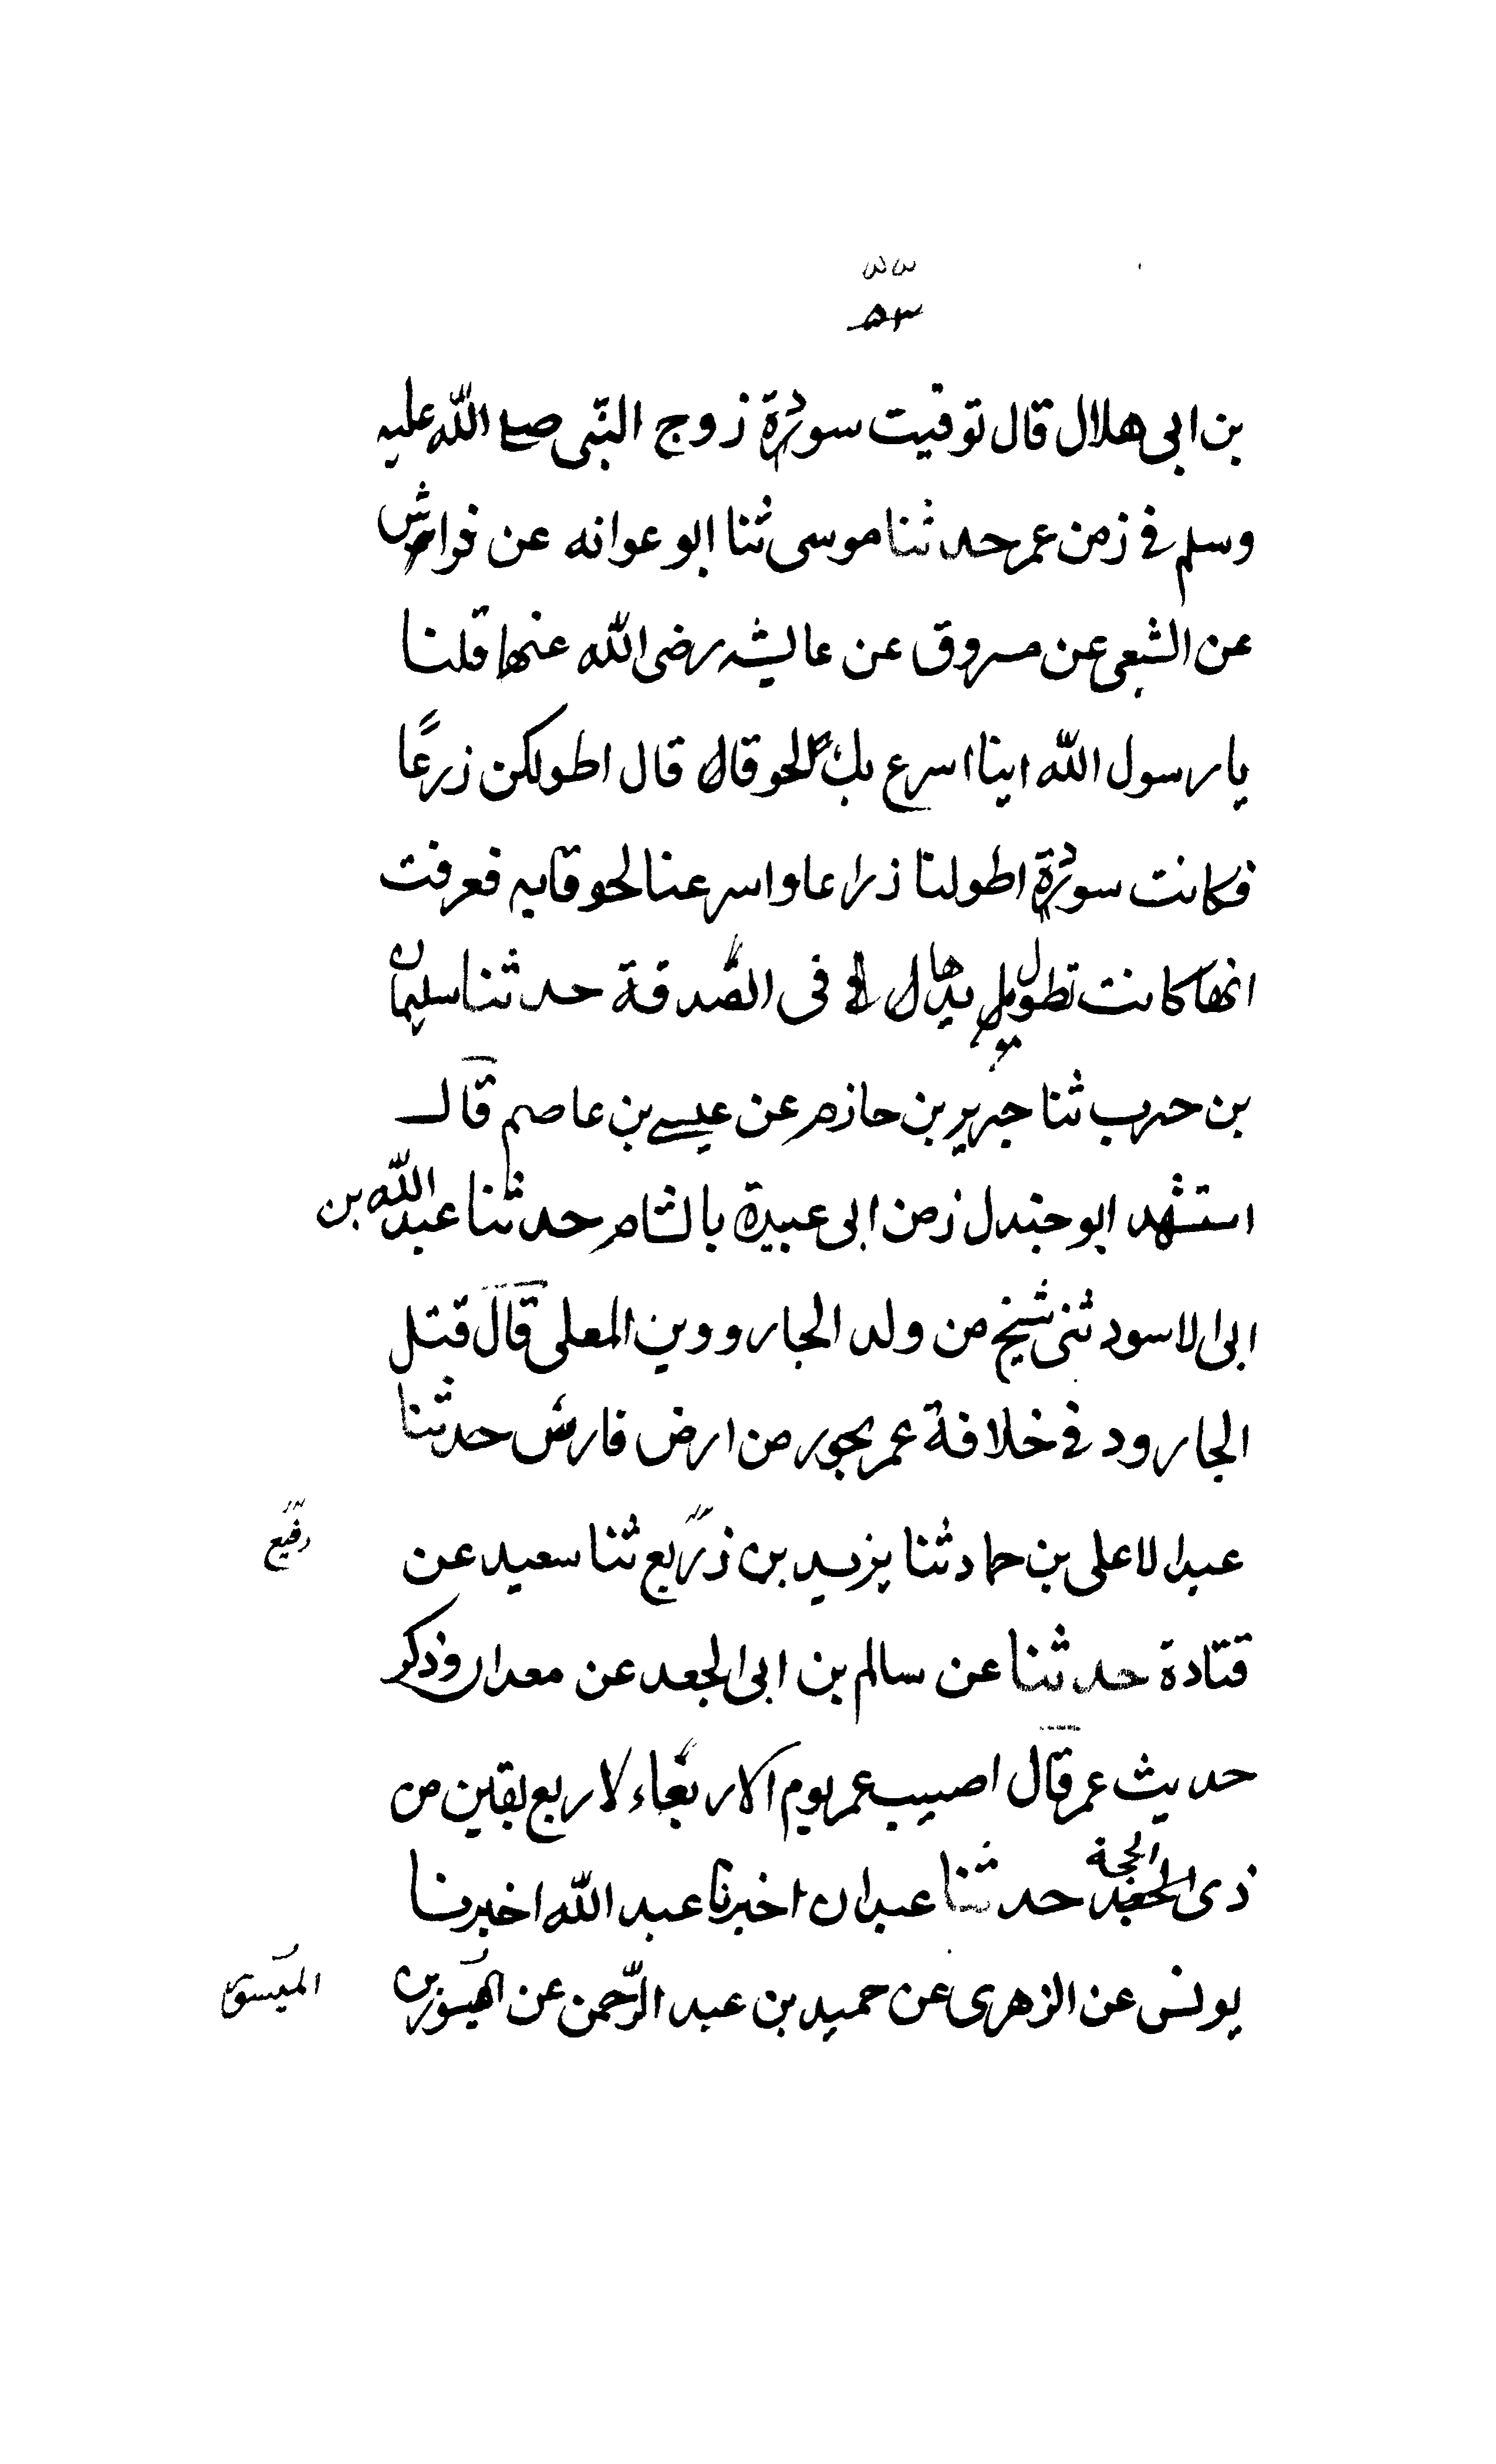 ٥٣
بن ابى هلال قال توفيت سودة زوج النبى صلے الله عليه
وسلم فى زمن عمر حدثنا موسى ثنا ابو عوانه عن فراش
عن الشعبى عن مسروق عن عايشه رضى الله عنها قلنا
يا رسول الله اينا اسرع بك لحوقا قال اطولكن ذرعًا
فكانت سودة اطولنا ذراعا واسرعنا لحوقا به فعرفت
انها كانت تطول يدها فى الصّدقة حدثنا سليمان
بن حرب ثنا جرير بن حازم عن عيسے بن عاصم قال
استشهد ابو جندل زمن ابى عبيدة بالشام حدثنا عبد الله بن
ابى الاسود ثنى شيخ من ولد الجارود بن المعلى قال قتل
الجارود فى خلافة عمر بجور من ارض فارس حدثنا
عبد الاعلى بن حماد ثنا يزيد بن زريع ثنا سعيد عن
رفيع
قتادة حدثنا عن سالم بن ابى الجعد عن معدان وذكر
حديث عمر قال اصيب عمر يوم الاربعاء لاربع بقين من
ذى الحجة حدثنا عبدان اخبرنا عبد الله اخبرنا
يونس عن الزهرى عن حميد بن عبد الرّحمن عن المسور بن